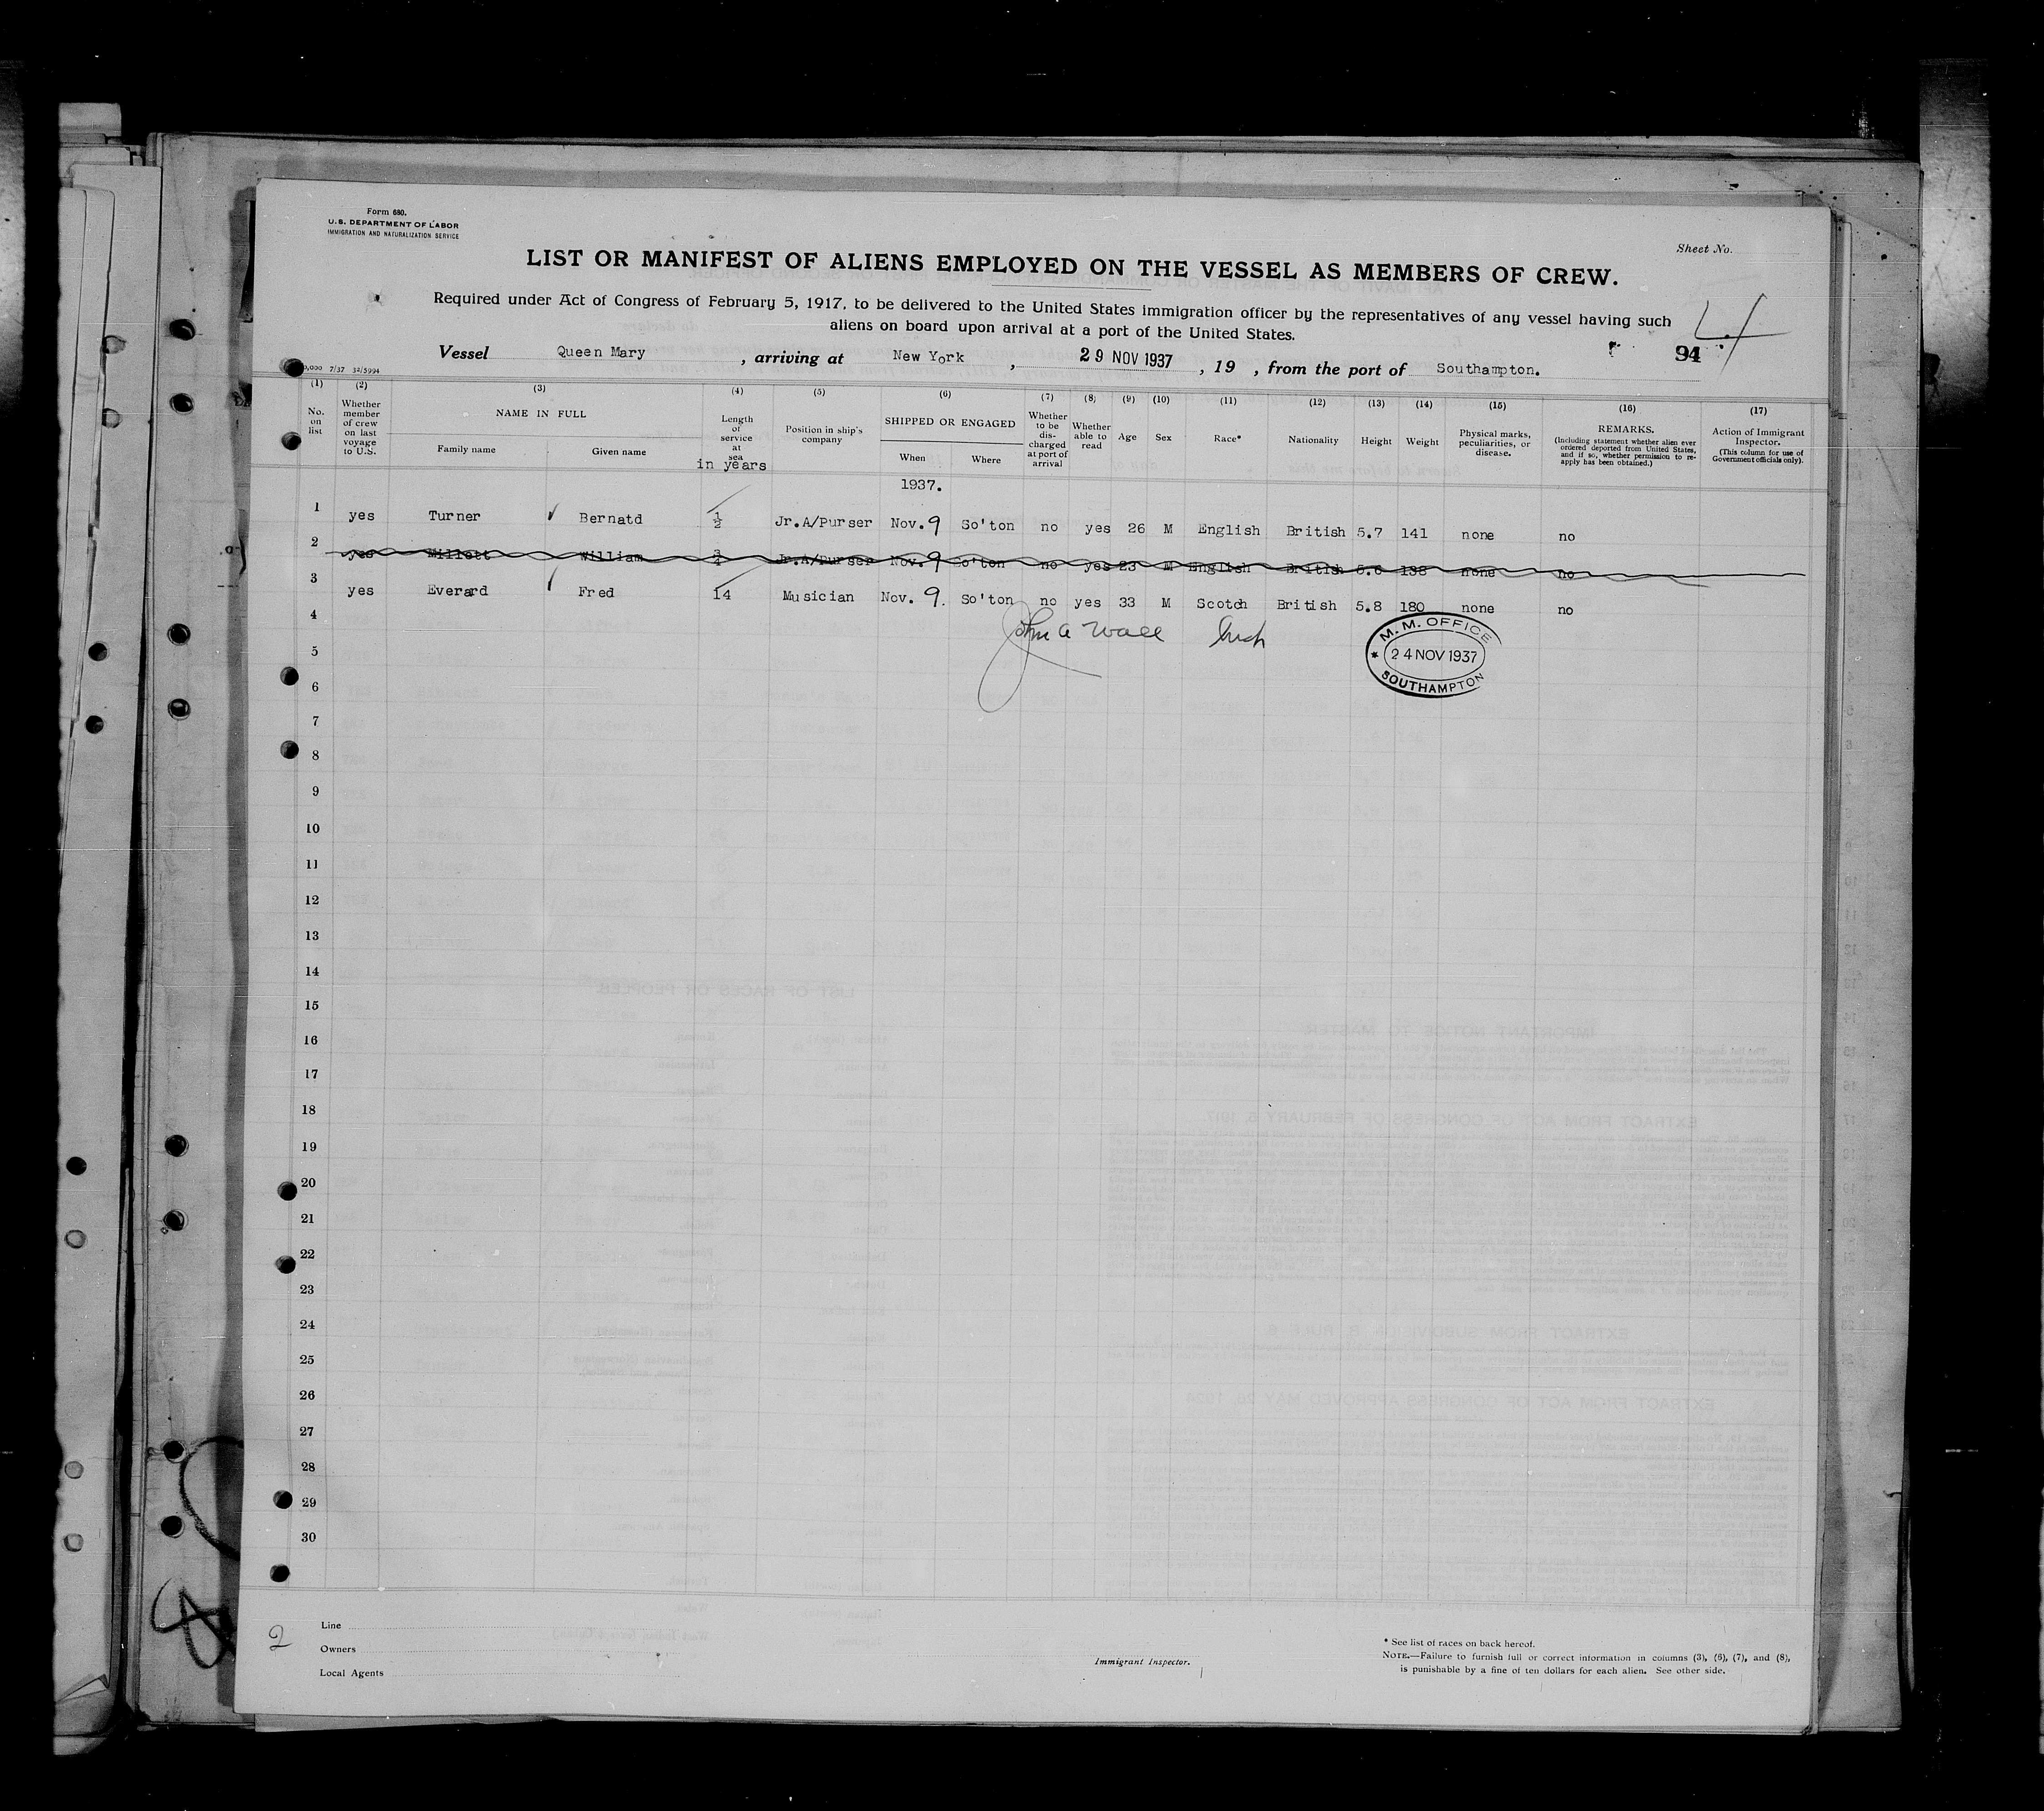 Form 680.
U.S. DEPARTMENT OF LABOR
IMMIGRATION AND NATURALIZATION SERVICE
Sheet No.
LIST OR MANIFEST OF ALIENS EMPLOYED ON THE VESSEL AS MEMBERS OF CREW.
Required under Act of Congress of February 5, 1917, to be delivered to the United States immigration officer by the representatives of any vessel having such
aliens on board upon arrival at a port of the United States.
4
94
Vessel Queen Mary , arriving at New York , 29 NOV 1937 , 19 , from the port of Southampton.
7/37 32/5994
(1) (2) (3) (4) (5) (6) (7) (8) (9) (10) (11) (12) (13) (14) (15) (16) (17)
No. on list
Whether member of crew on last voyage to U.S.
NAME IN FULL
Family name Given name
Length of service at sea
in years
Position in ship's company
SHIPPED OR ENGAGED
When Where
Whether to be discharged at port of arrival
Whether able to read
Age
Sex
Race*
Nationality
Height
Weight
Physical marks, peculiarities, or disease.
REMARKS.
(Including statement whether alien ever ordered deported from United States, and if so, whether permission to re-apply has been obtained.)
Action of Immigrant Inspector.
(This column for use of Government officials only).
1937.
1 yes Turner Bernatd ½ Jr.A/Purser Nov. 9 So'ton no yes 26 M English British 5.7 141 none no
2 yes Millett William ¾ Jr.A/Purser Nov. 9 So'ton no yes 23 M English British 5.6 138 none no
3 yes Everard Fred 14 Musician Nov. 9. So'ton no yes 33 M Scotch British 5.8 180 none no
4
John A Wall
M.M. OFFICE
24 NOV 1937
SOUTHAMPTON
5
6
7
8
9
10
11
12
13
14
15
16
17
18
19
20
21
22
23
24
25
26
27
28
29
30
2
Line
Owners
Local Agents
Immigrant Inspector.
* See list of races on back hereof.
NOTE.—Failure to furnish full or correct information in columns (3), (6), (7), and (8),
is punishable by a fine of ten dollars for each alien. See other side.